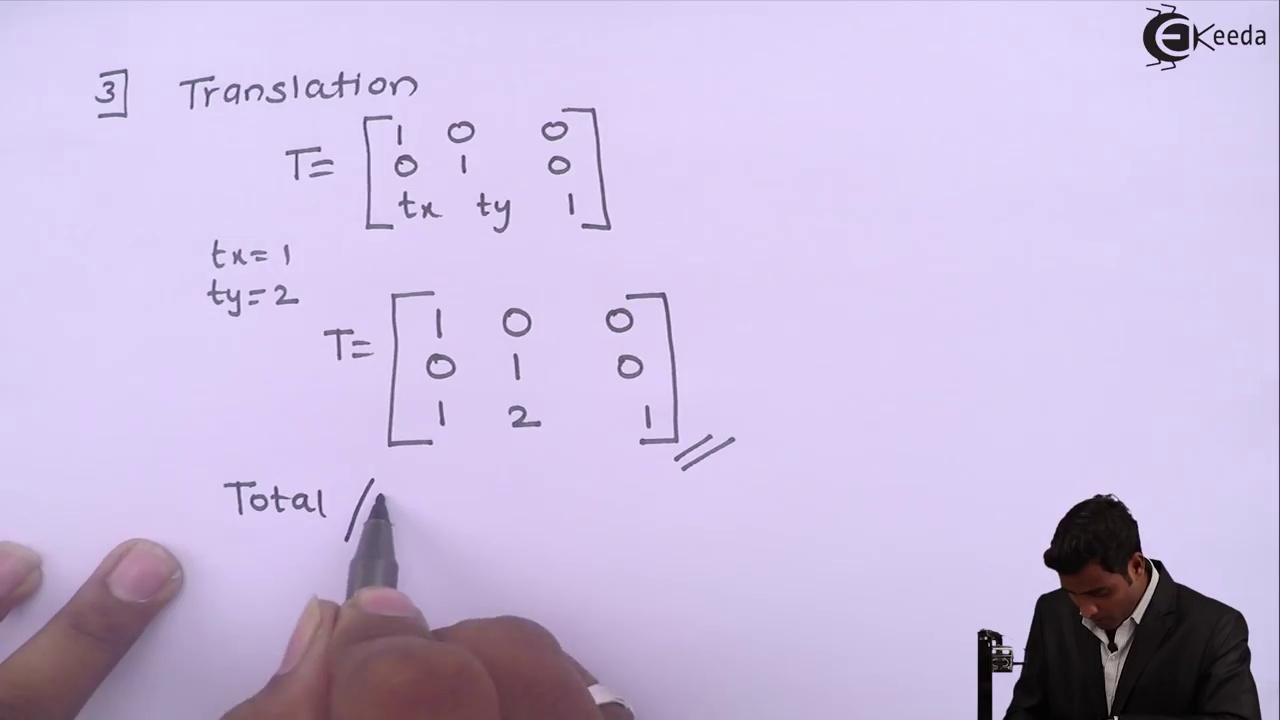 EKeeda
3] Translation
T= [ 1 0 0
0 1 0
tx ty 1 ]
tx= 1
ty= 2
T= [ 1 0 0
0 1 0
1 2 1 ] //
Total /